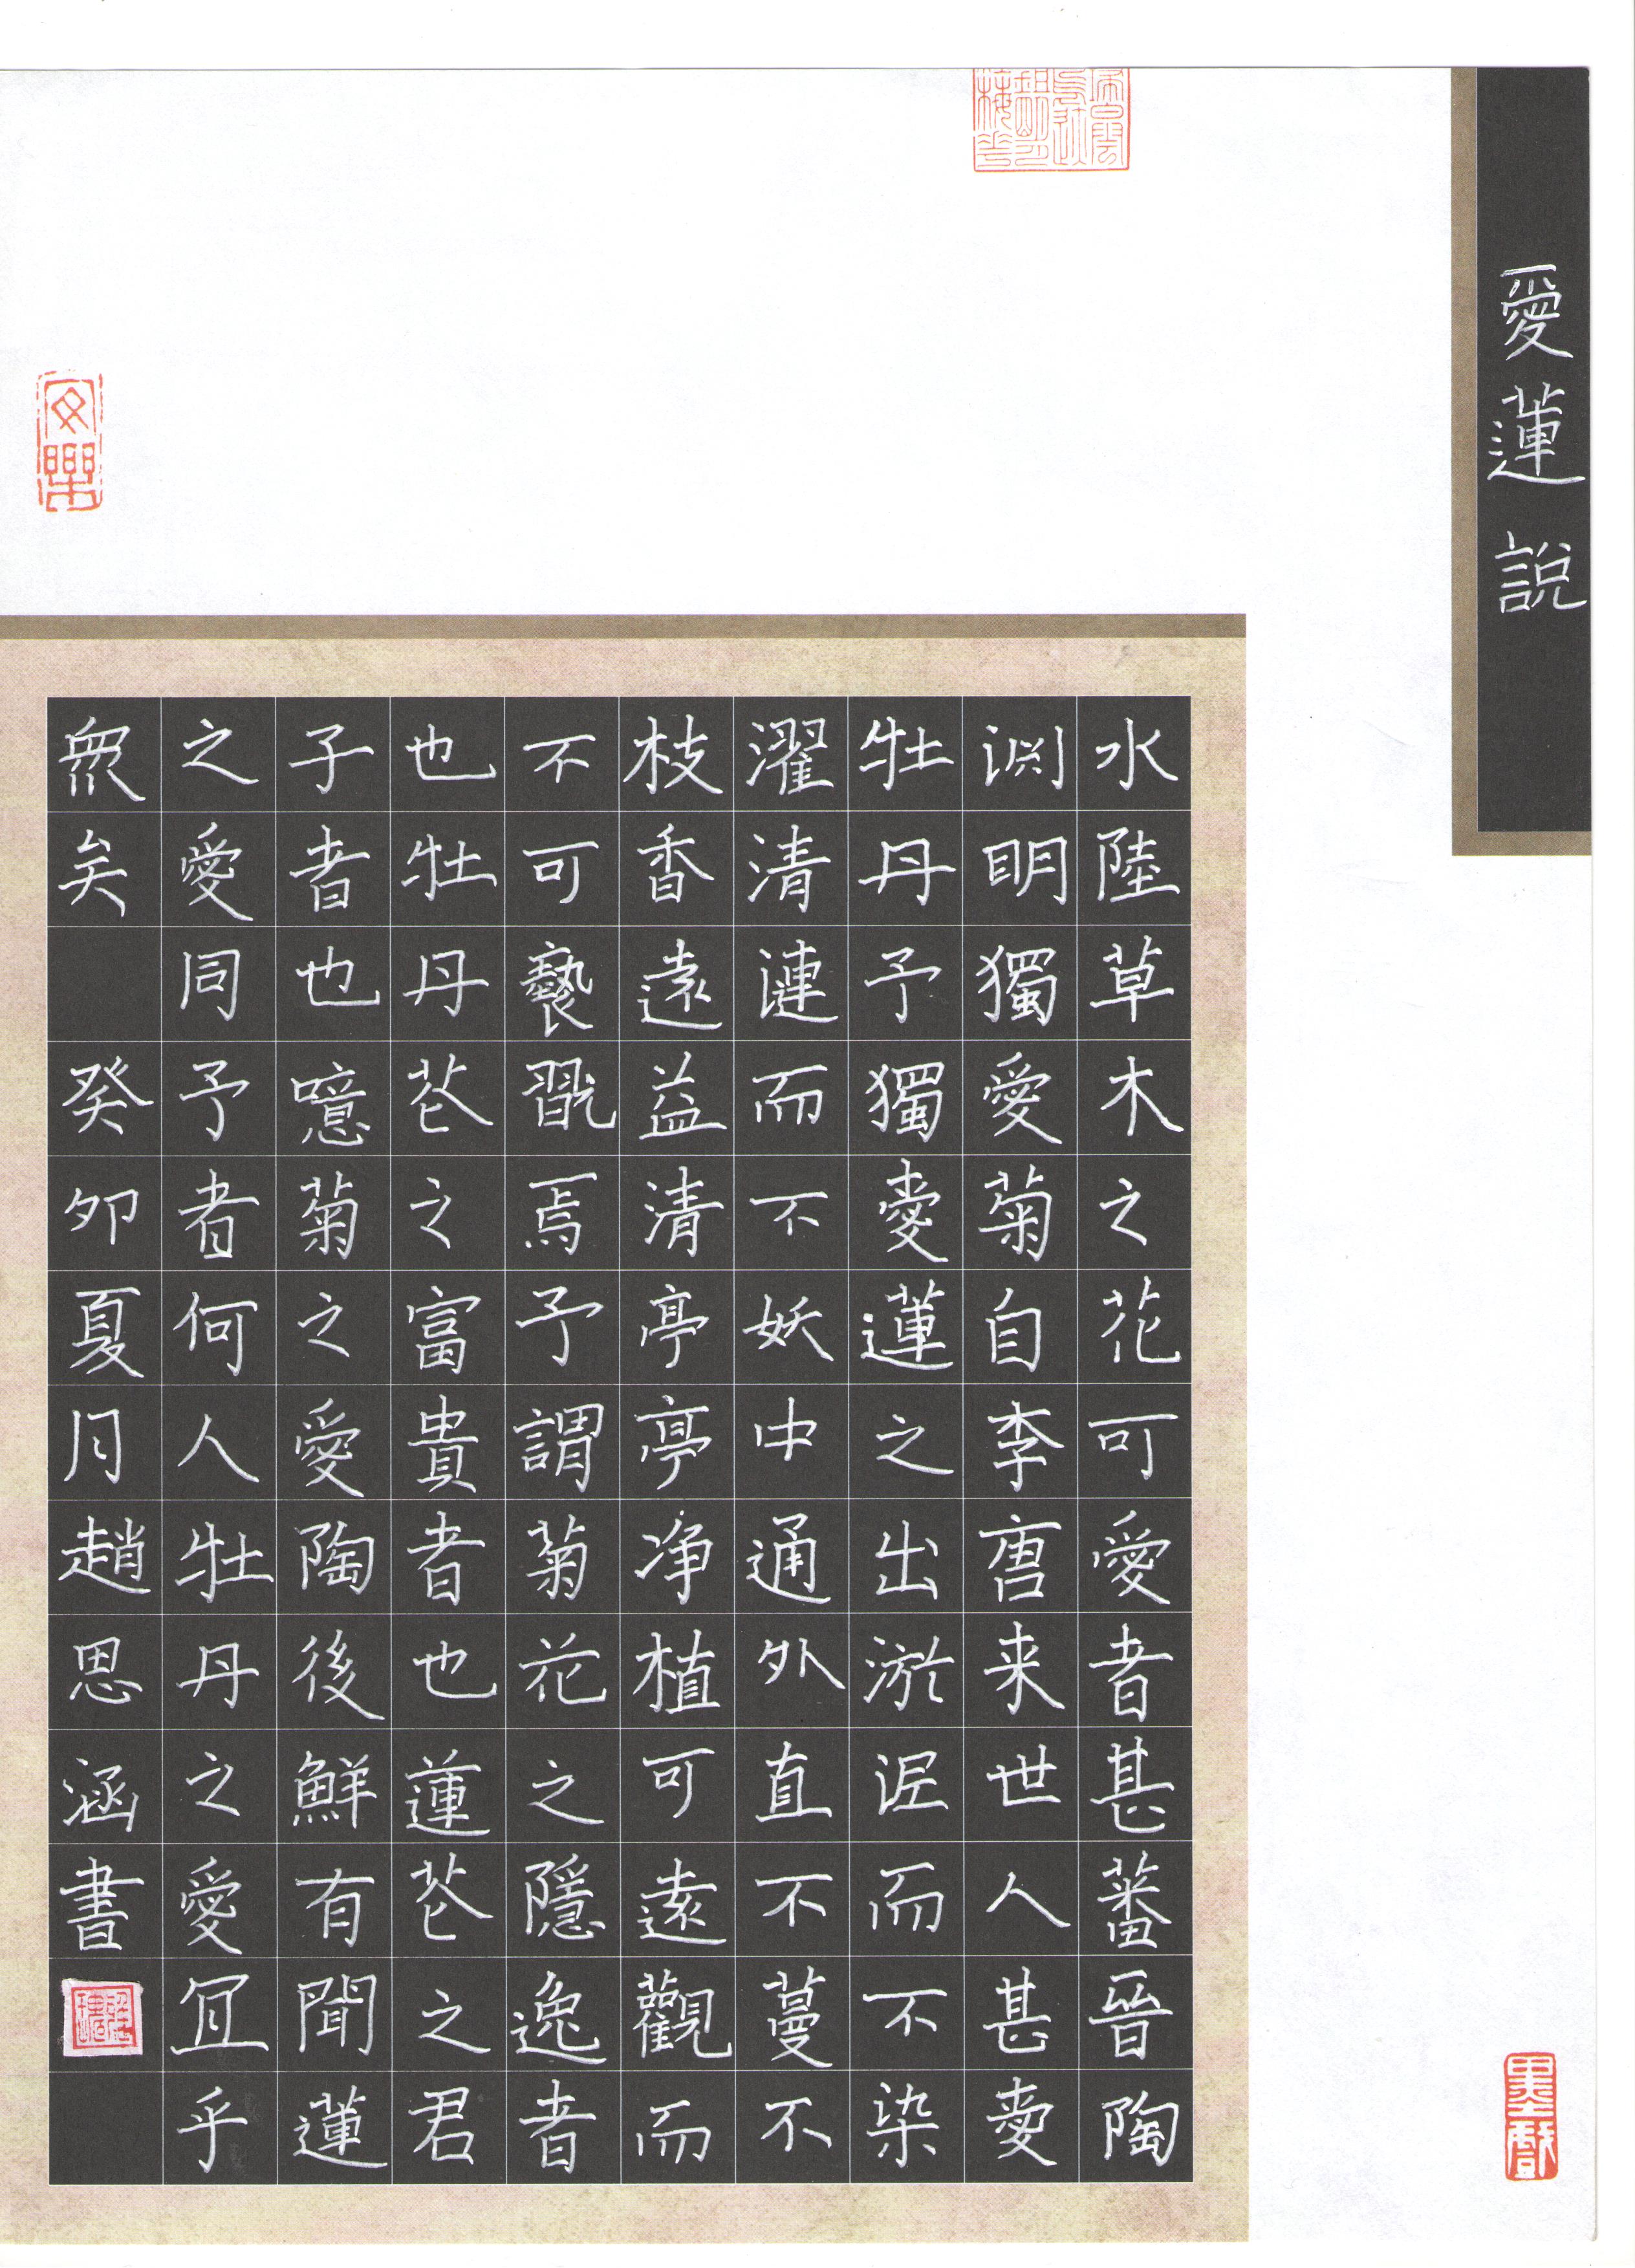 愛蓮說
水陸草木之花可愛者甚蕃晉陶
渊眀獨愛菊自李唐来世人甚愛
牡丹予獨愛蓮之出淤泥而不染
濯清漣而不妖中通外直不蔓不
枝香遠益清亭亭净植可遠觀而
不可褻翫焉予謂菊花之隱逸者
也牡丹花之富貴者也蓮花之君
子者也噫菊之愛陶後鮮有聞蓮
之愛同予者何人牡丹之愛冝乎
眾矣 癸卯夏月趙思涵書
安樂
墨戲